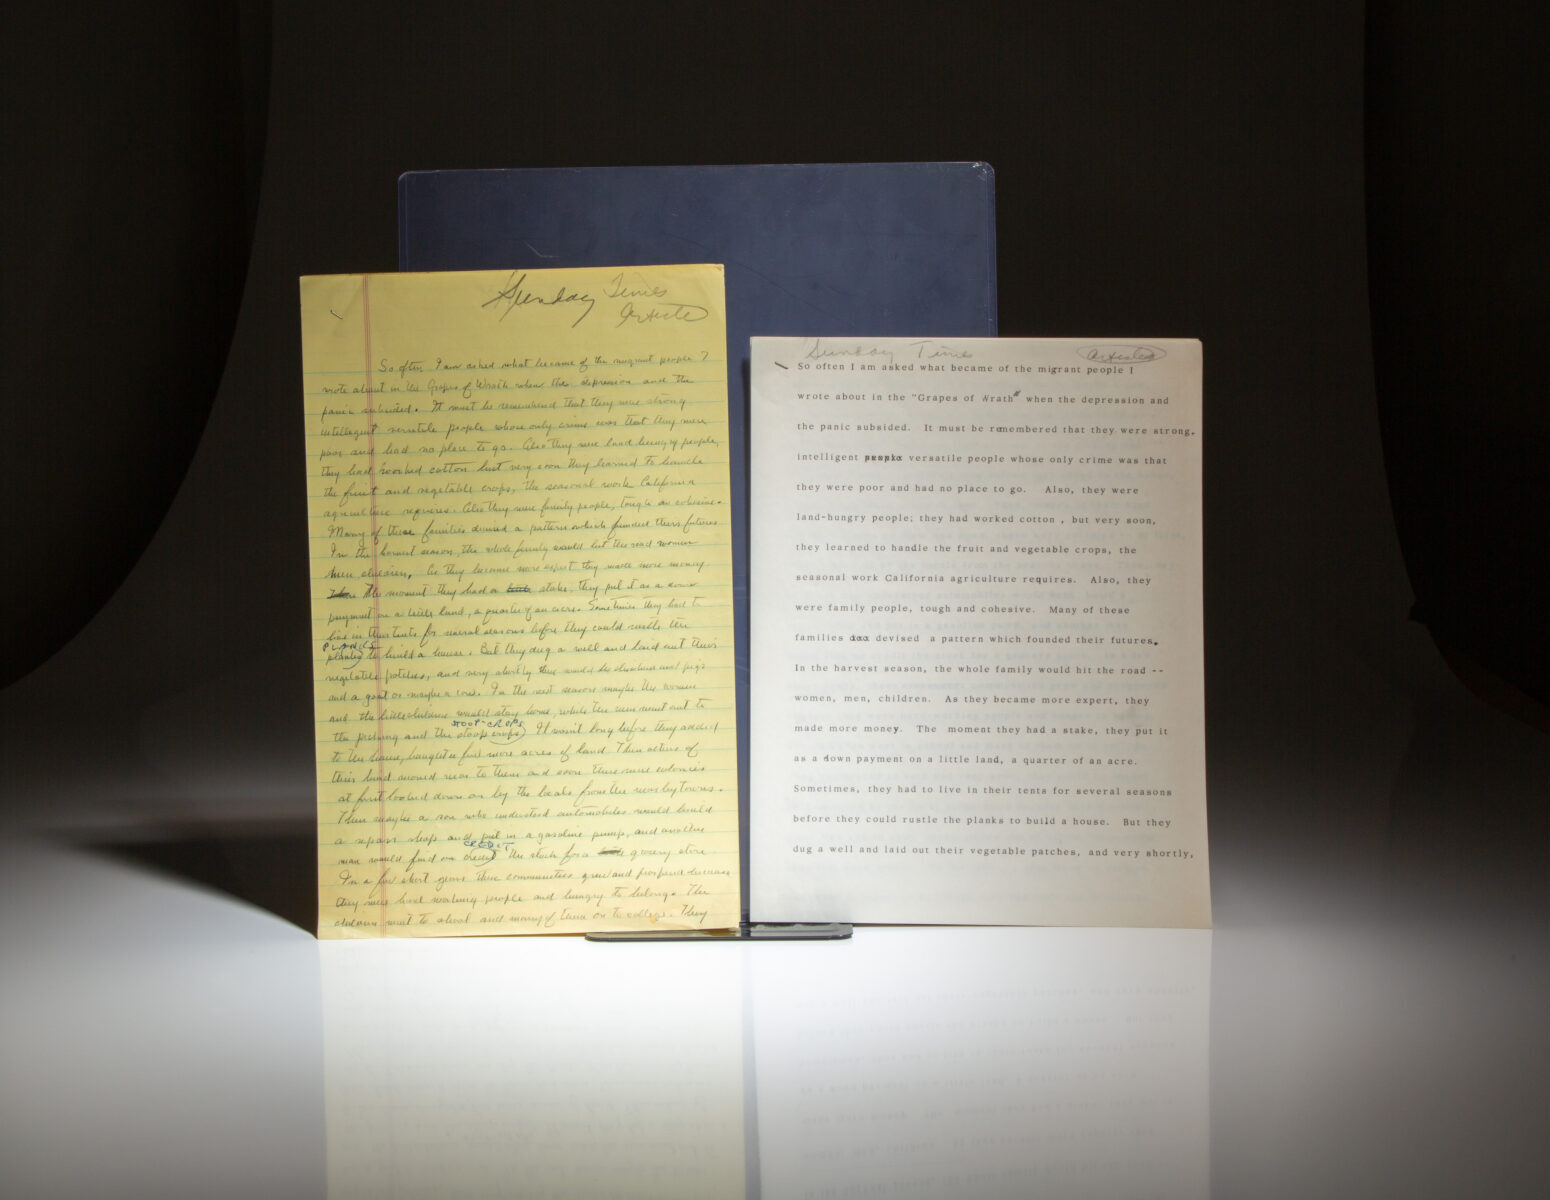 Sunday Times
Article
So often I am asked what became of the migrant people I
wrote about in the Grapes of Wrath when the depression and the
panic subsided. It must be remembered that they were strong
intelligent versatile people whose only crime was that they were
poor and had no place to go. Also they were land hungry people,
they had worked cotton but very soon they learned to handle
the fruit and vegetable crops, the seasonal work California
agriculture requires. Also they were family people, tough an cohesive.
Many of these families devised a pattern which founded their futures
In the harvest season, the whole family would hit the road women
men children. As they became more expert they made more money
The moment they had a stake, they put it as a down
payment on a little land, a quarter of an acre. Sometimes they had to
live in their tents for several seasons before they could rustle the
PLANKS
planks to build a house. But they dug a well and laid out their
vegetable patches, and very shortly there would be chickens and pigs
and a goat or maybe a cow. In the next season maybe the women
and the little children would stay home, while the men went out to
ROOT-CROPS
the picking and the stoop crops. It wasn't long before they added
to the house, bought a few more acres of land. Then others of
their kind moved near to them and soon there were colonies
at first looked down on by the locals from the nearby towns.
Then maybe a son who understood automobiles would build
a repair shop and put in a gasoline pump, and another
CREDIT
man would find on credit the stock for a grocery store.
In a few short years these communities grew and prospered because
they were hard working people and hungry to belong. The
children went to school and many of them on to college. They
Sunday Times
Article
So often I am asked what became of the migrant people I
wrote about in the "Grapes of Wrath" when the depression and
the panic subsided. It must be remembered that they were strong.
intelligent versatile people whose only crime was that
they were poor and had no place to go. Also, they were
land-hungry people; they had worked cotton , but very soon,
they learned to handle the fruit and vegetable crops, the
seasonal work California agriculture requires. Also, they
were family people, tough and cohesive. Many of these
families devised a pattern which founded their futures.
In the harvest season, the whole family would hit the road --
women, men, children. As they became more expert, they
made more money. The moment they had a stake, they put it
as a down payment on a little land, a quarter of an acre.
Sometimes, they had to live in their tents for several seasons
before they could rustle the planks to build a house. But they
dug a well and laid out their vegetable patches, and very shortly,